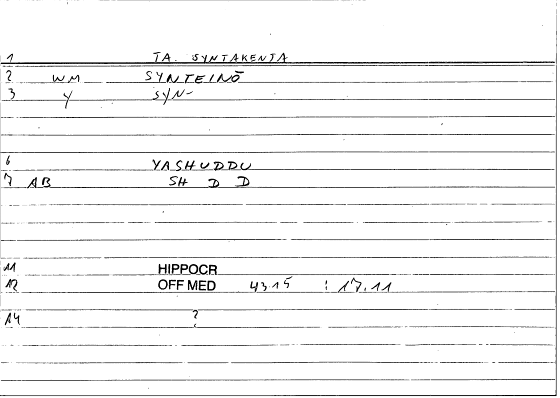 1 TA. SYNTAKENTA
2 WM SYNTEINŌ
3 Y SYN-
6 YASHUDDU
7 AB SH D D
11 HIPPOCR
12 OFF MED 4315 : 17.11
14 ?